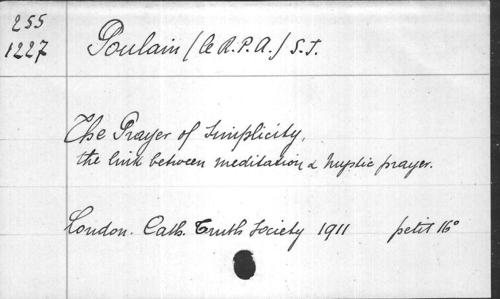 255
1227
Poulain (le R.P.A.) S.J.
The Prayer of Simplicity,
the link between meditation & mystic prayer.
London. Cath. Truth Society 1911 petit 16°